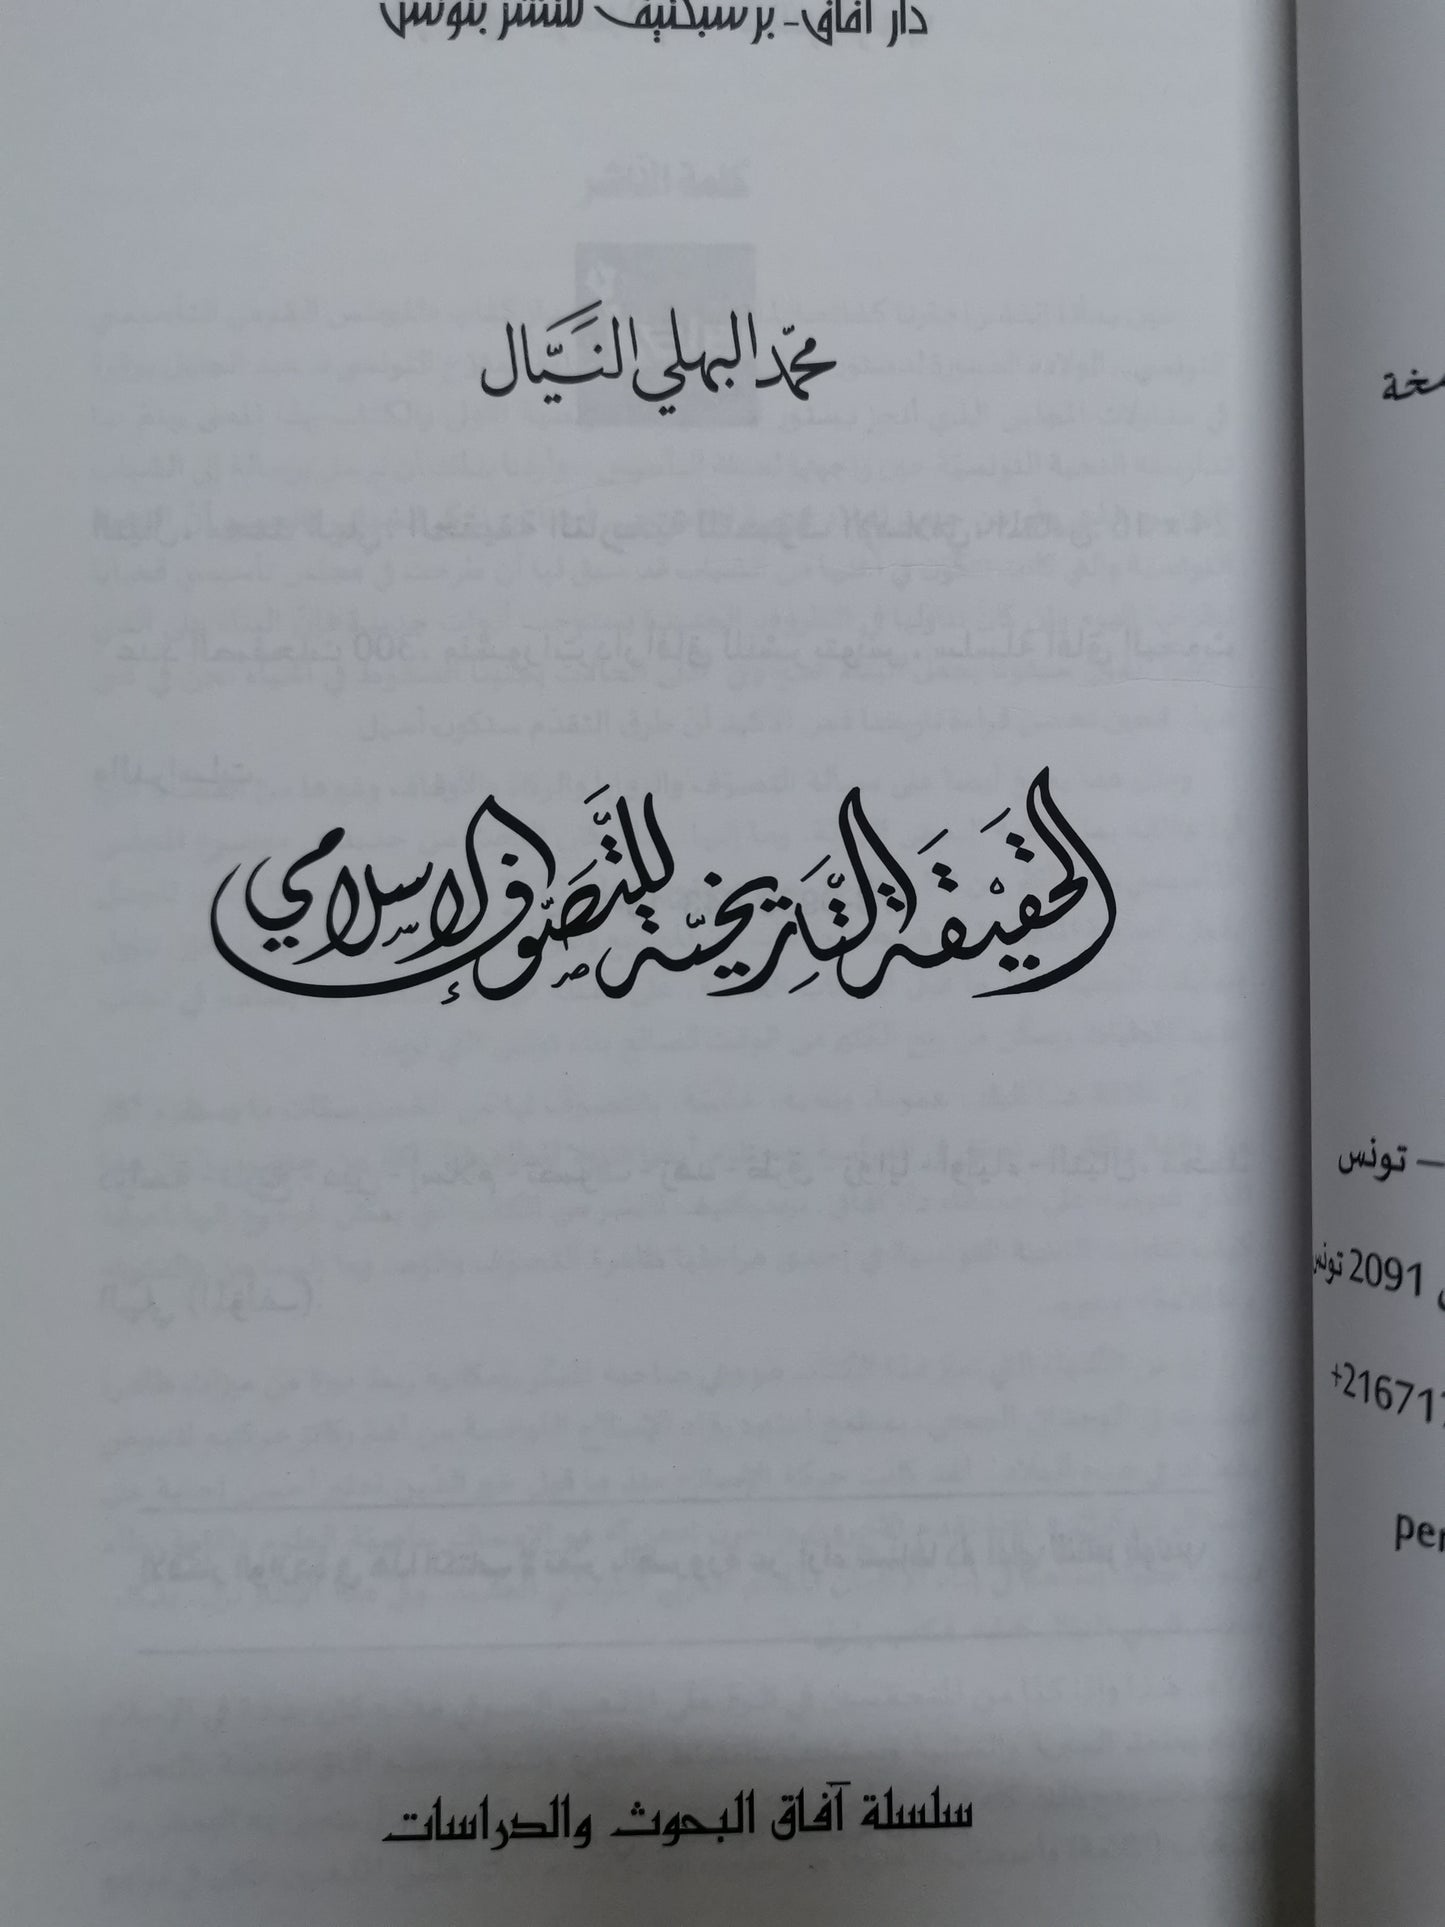 دار آفاق - برسبكتيف للنشر بتونس
محمّد البهلي النَيَّال
الحَقيْقَة التَّارِيخيّة للتَّصَوّف الإسلامي
سلسلة آفاق البحوث والدراسات
– تونس
2091 تونس
+21671